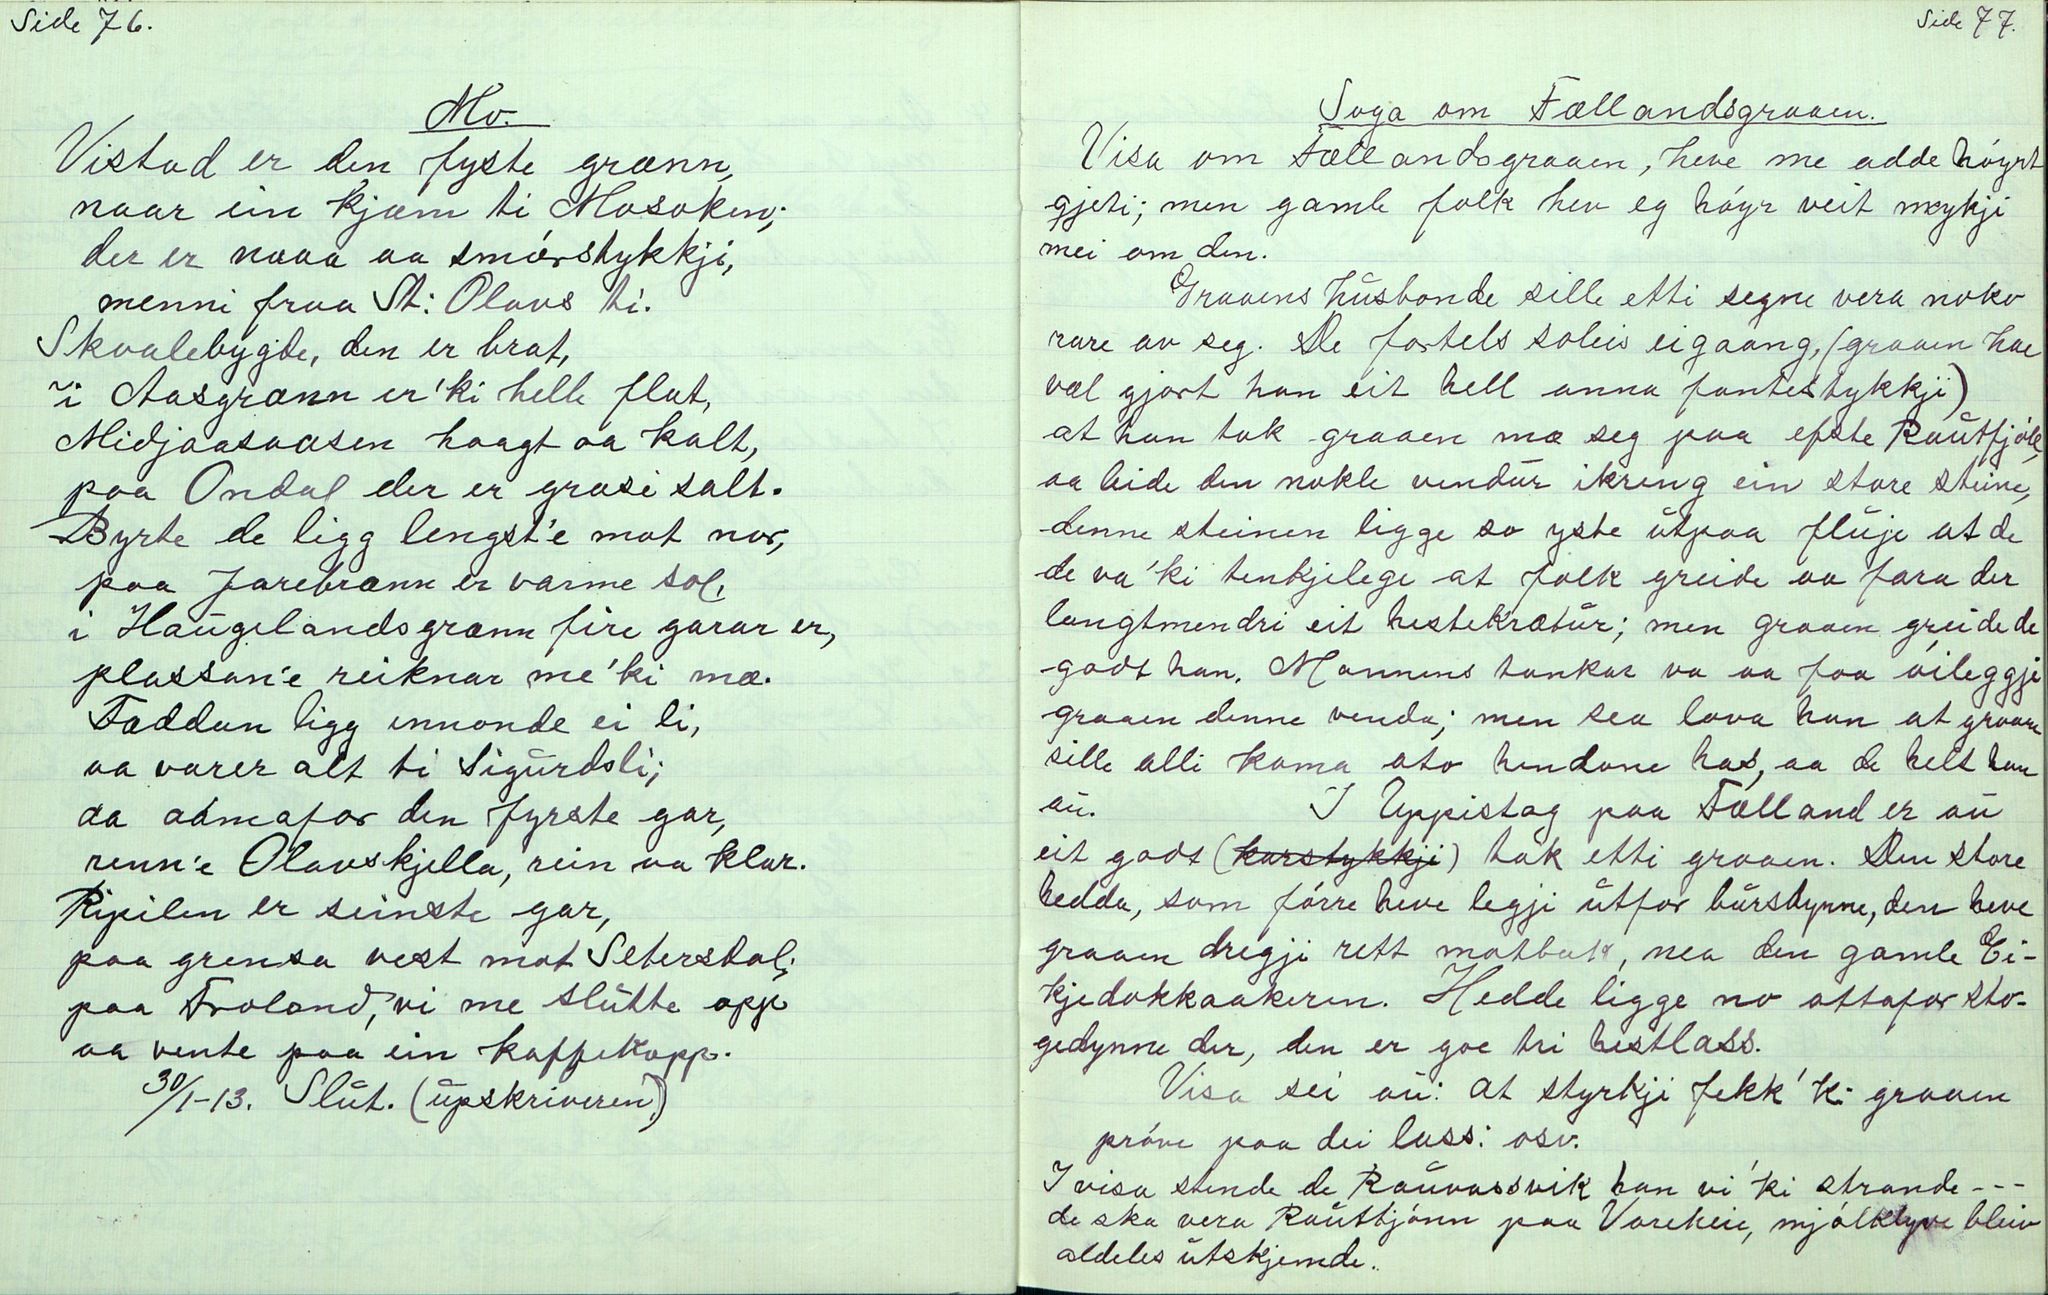 Side 76.
Mo.
Vistad er den fyste grænn,
naar ein kjæm ti Mosoken;
der er naaa aa smórstykkji,
menni fraa St: Olavs ti.
Skvalebygde, den er brat,
i Aasgrænn er'ki helle flat,
Midjaasaasen haagt aa kalt,
paa Ondal der er grasi salt.
Byrte de ligg lengst'e mot nor,
paa Jarebrænn er varme sol,
i Haugelandsgrænn fire garar er,
plassan'e reiknar me'ki mæ.
Fæddan ligg innonde ei li,
aa varer alt ti Sigurdsli;
aa aamafor den fyrste gar,
renn'e Olavskjella, rein aa klar.
Ripilen er seinste gar,
paa grensa vest mot Setersdal;
paa Froland, vi me slutte opp
aa vente paa ein kaffikopp.
30/1-13. Slut. (upskriveren)
Side 77.
Soga om Fællandsgraaen.
Visa om Fællandsgraaen, heve me adde høyrt
gjeti; men gamle folk hev eg høyr veit mykji
mei om den.
Graaens husbonde sille etti segne vera noko
rare av seg. De fortels soleis eigaang, (graaen hae
væl gjort han eit hell anna fantestykkji)
at han tok graaen mæ seg paa efste Rautfjøll,
aa leide den nokle vendur ikring ein store steine,
denne steinen ligge so yste utpaa fluje at de
de va'ki tenkjelege at folk greide aa fara der
langtmendri eit hestekrætur; men graaen greide de
godt han. Mannens tankar va aa faa øileggje
graaen denne venda; men sea lova han at graaen
sille alli koma uto hendane has, aa de helt han
au. I Uppistog paa Fælland er au
eit godt (karstykkji) tak etti graaen. Den store
hedda, som fórre heve legji utfor bursdynne, den heve
graaen dregji rett motbak, nea den gamle Ei-
kjedokkaakeren. Hedde ligge no attafor sto-
gedynne der, den er goe tri hestlass.
Visa sei au: at styrkji fekk'ki graaen
próve paa dei lass: osv.
I visa stende de Rauvassvik han vi'ki strande ---
de ska vera Rauttjónn paa Vareheie, mjólklyve bleiv
aldeles utskjemde.